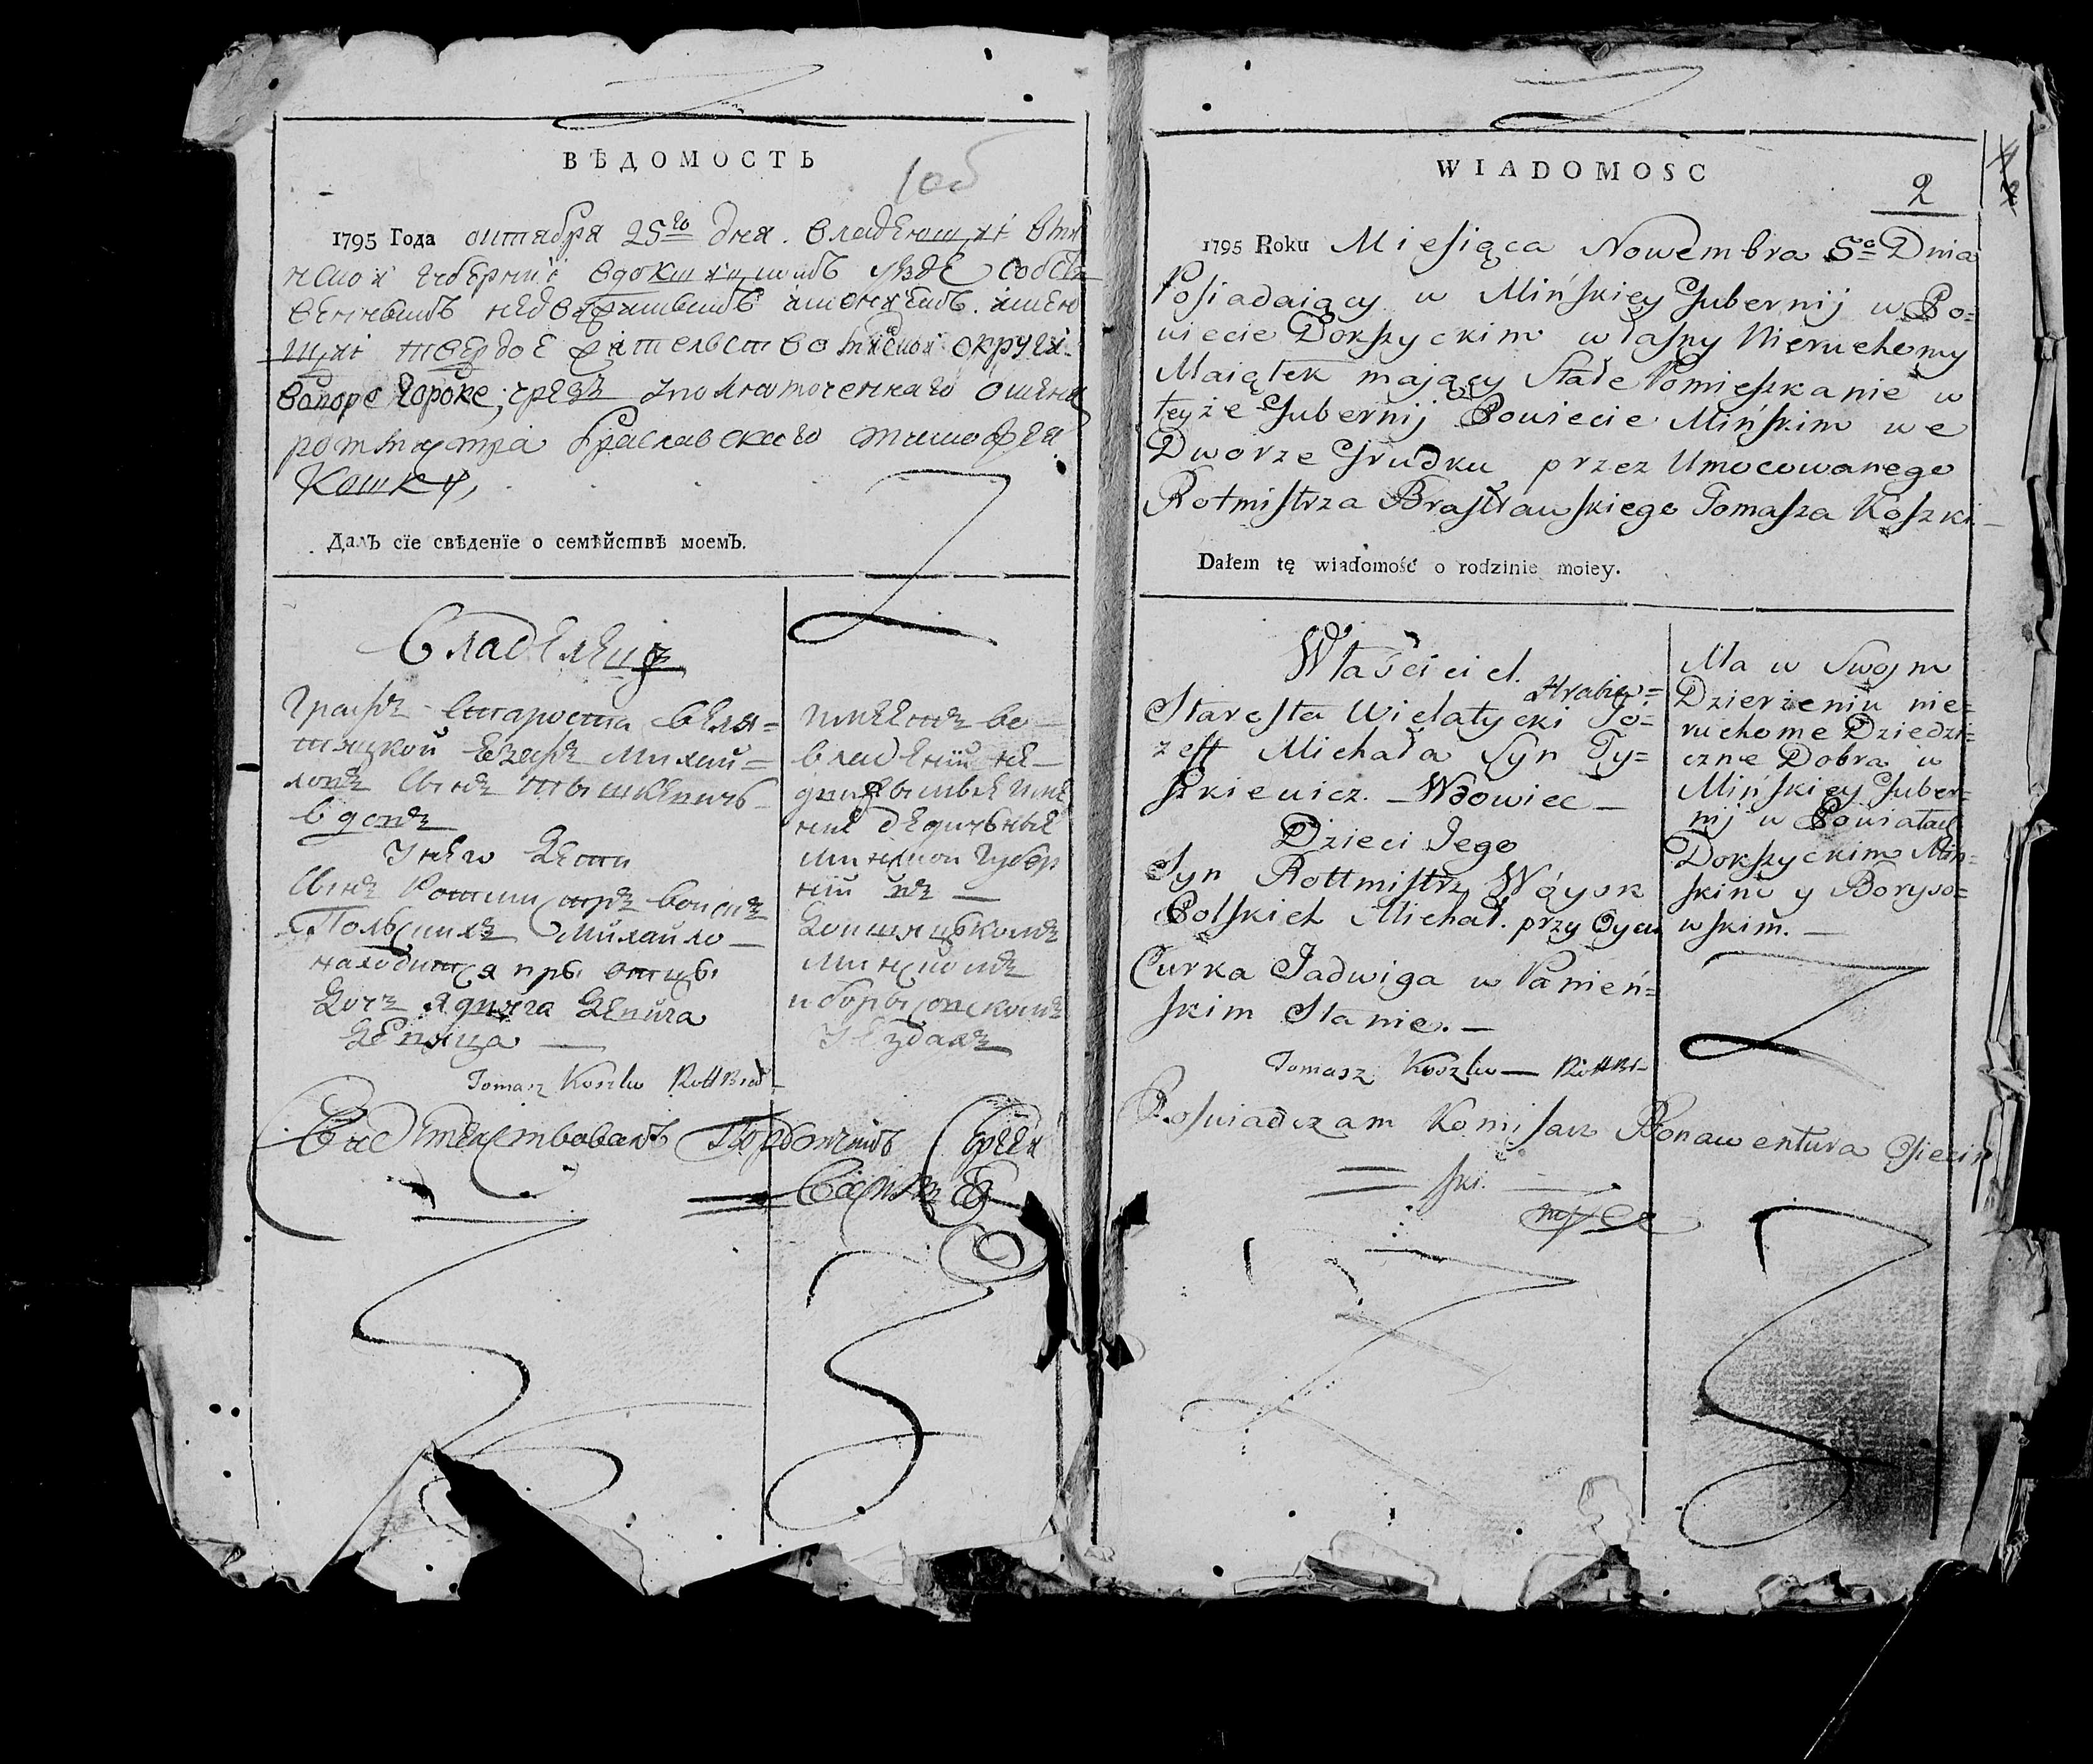 ВѢДОМОСТЬ
1об
1795 Года октября 25го дня. владеющій въ мин
ской губерніи вдокшицкимъ уезде собст
веннымъ недвижимымъ имениемъ. имею
щій твердое жителство минской округи
воворе Городке, чрезъ уполномоченнаго
ротмистра браславского тимофея
Кошки,
Далъ сїе свѣденїе о семѣйствѣ моемЪ.
Владелецъ
Графъ Староста веля=
тицкой Езефъ Михай=
ловъ сынъ Тышкевичъ
вдовъ
У него дети
Сынъ Ротмистръ войскъ
Польскихъ Михайло
находится при отцы
дочъ Ядвига
девица
Tomasz Koszko Rott Brasł
имеетъ во
владении не
движымые име
ние дедичные
минской губер
нии въ
Докшицькомъ
минскомъ
и борисовскомъ
уездахъ
WIADOMOSC
2
1795 Roku Miesiąca Nowembra 5o Dnia
Posiadaiący w Mińskiey Gubernij w Po=
wiecie Dokszyckim własny Nieruchomy
Maiątek mający Stałe Pomieszkanie w
teyże Gubernij Powiecie Mińskim we
Dworze Grudku przez Umocowanego
Rotmistrza Brasławskiego Tomasza Koszki
Dałem tę wiadomość o rodzinie moiey.
Właściciel.
Hrabia=
Starosta Wielatycki Jo=
zeff Michała Syn Ty=
szkiewicz. – Wdowiec –
Dzieci Jego
Syn Rottmistrz Wóysk
Polskich Michał. przy Oycu
Curka Jadwiga w Panień=
skim Stanie. –
Tomasz Koszko — Rott Br
Ma w Swojm
Dzierżeniu nie=
ruchome Dziedzi=
czne Dobra w
Mińskiey Guber=
nij w Powiatach
Dokszyckim Miń=
skim y Boryso=
wskim. —
Poswiadczam Komisarz Bonawentura Osiecim
ski.
mp